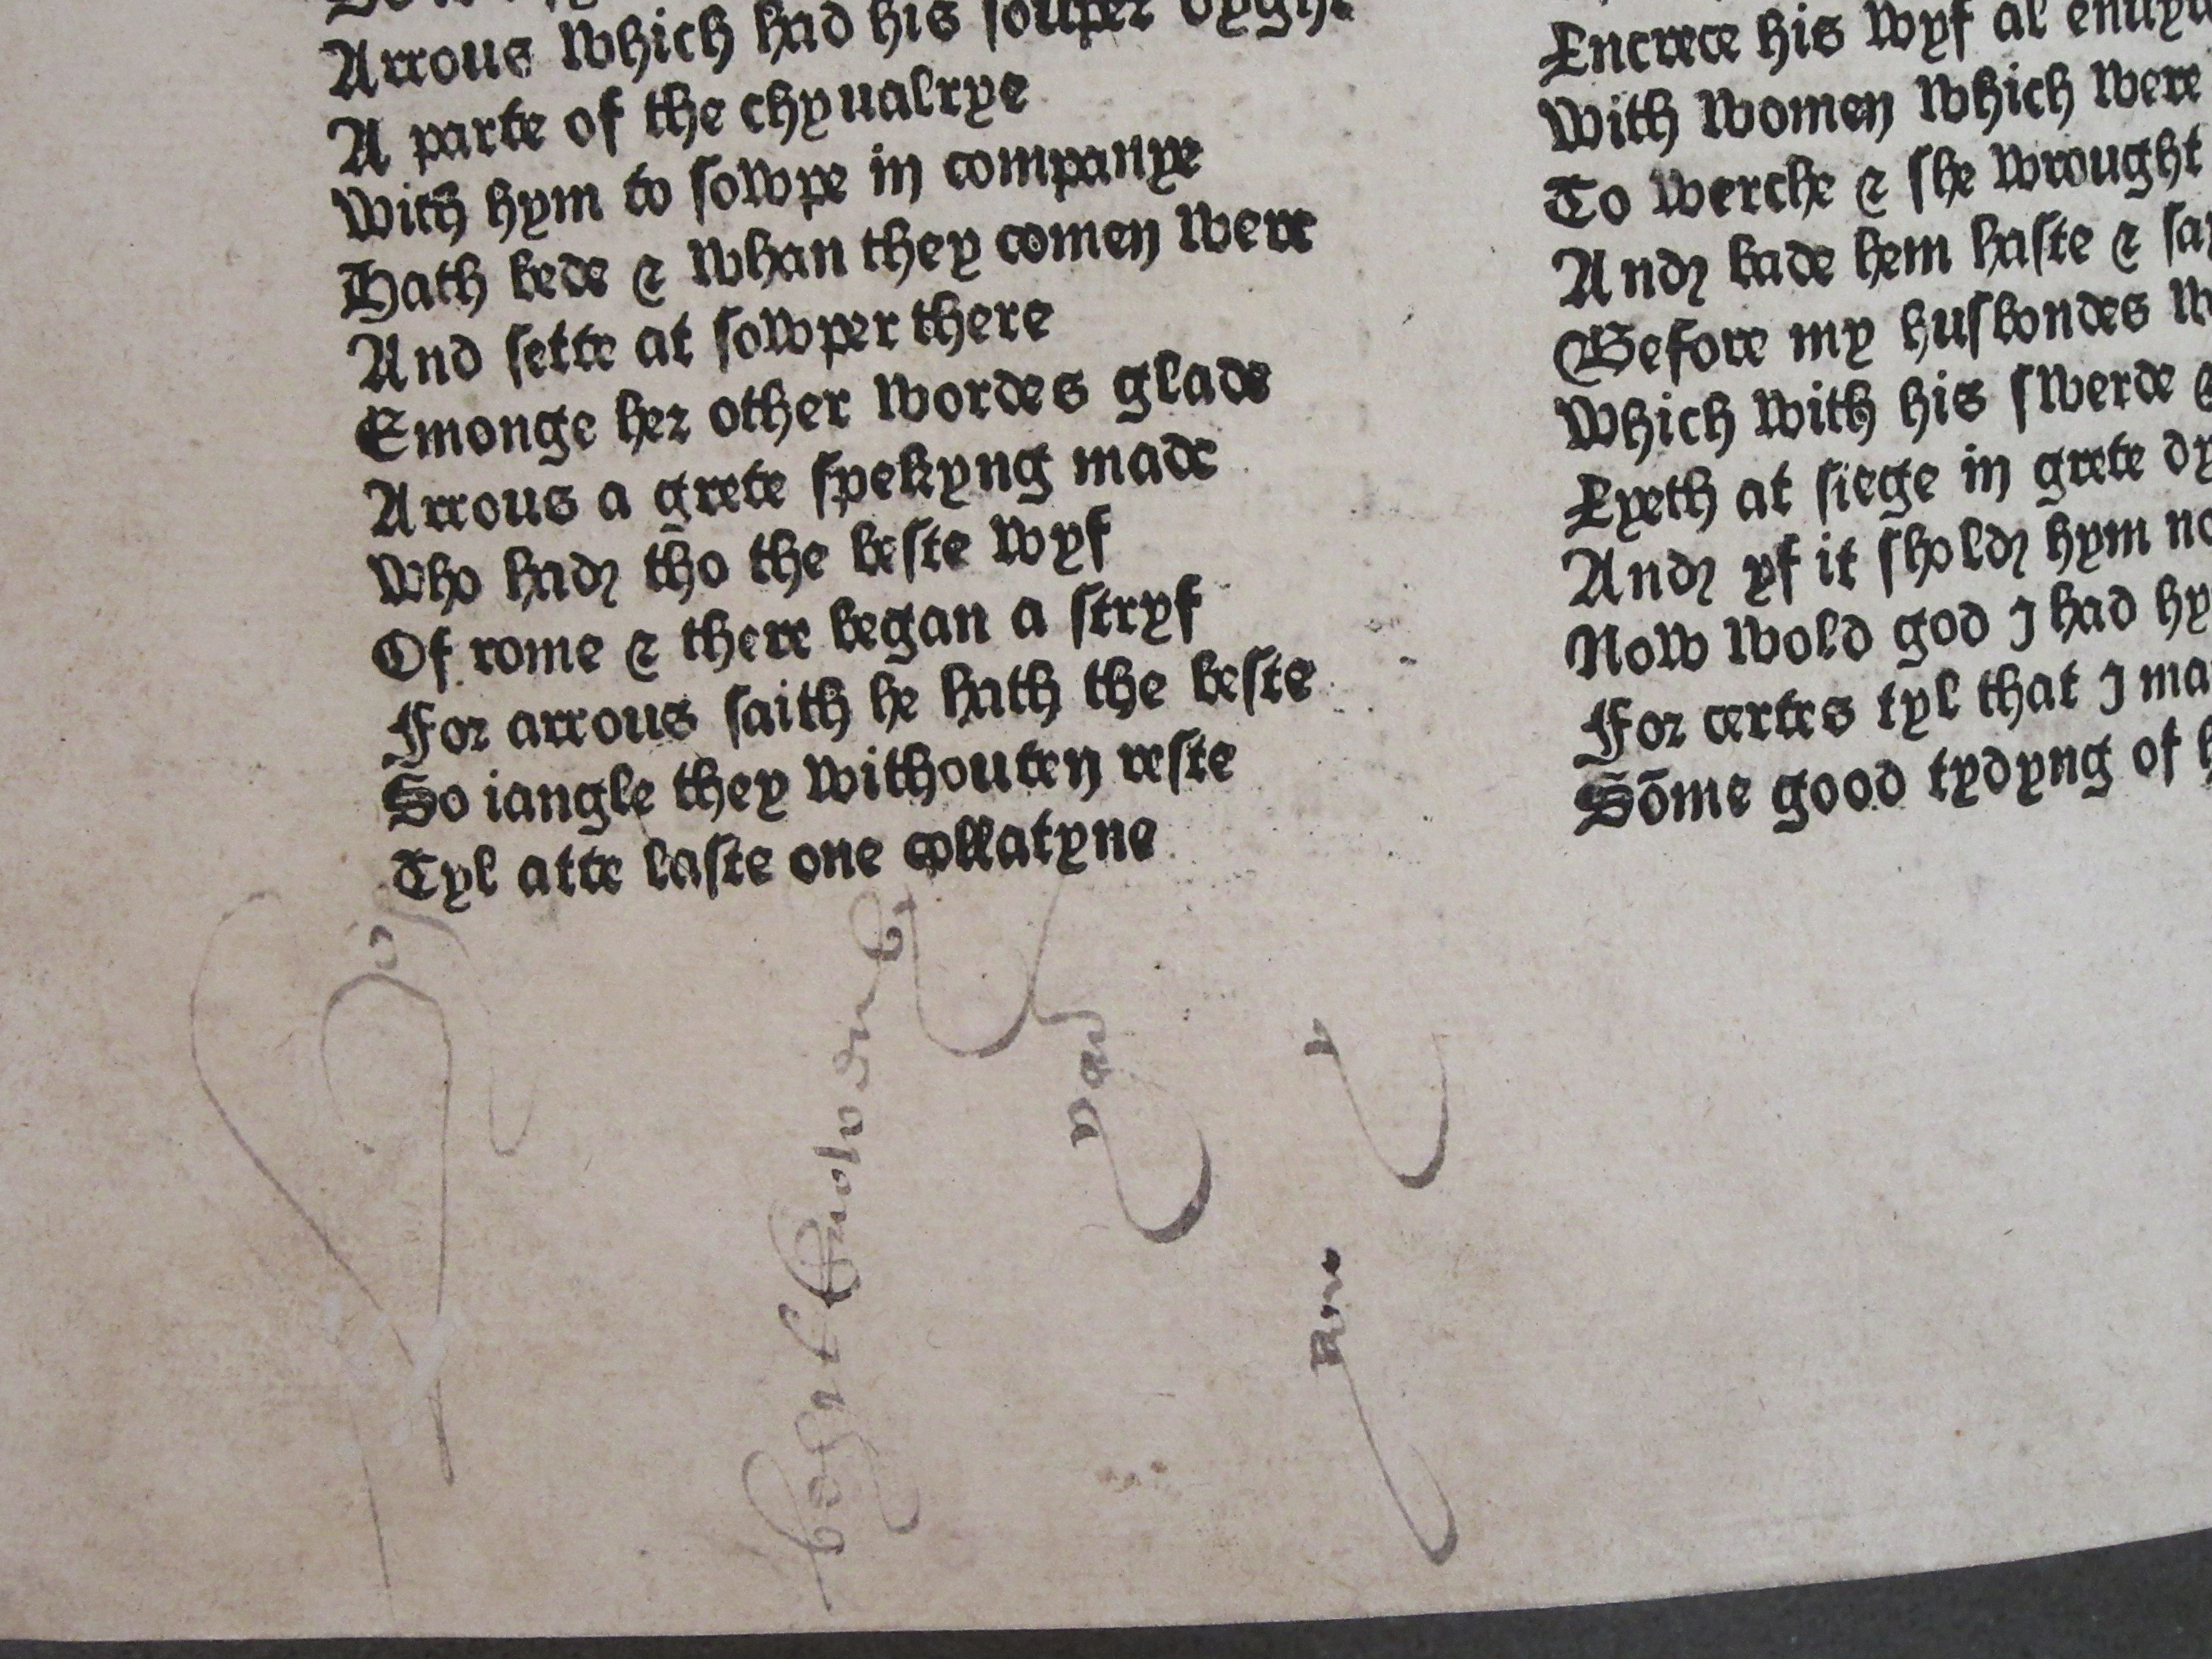 Arrous which had his souper
A parte of the chyualrye
With hym to sowpe in companye
Hath bede & whan they comen were
And sette at sowper there
Emonge her other wordes glade
Arrous a grete spekyng made
Who had tho the beste wyf
Of rome & there began a stryf
For arrous saith he hath the beste
So iangle they withouten reste
Tyl atte laste one collatyne
Encrece his wyf al
With women which were
To werche & she wrought
And bade hem haste &
Before my husbondes
Which with his swerde
Lyeth at siege in grete
And yf it shold hym
Now wold god I had
For certes tyl that I
Sōme good tydyng of